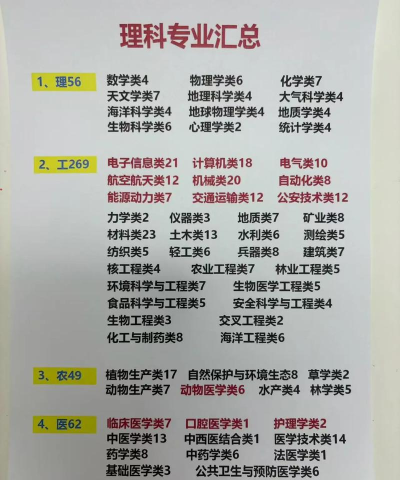 理科专业汇总
1、理56 数学类4 物理学类6 化学类7
天文学类7 地理科学类4 大气科学类4
海洋科学类4 地球物理学类4 地质学类4
生物科学类6 心理学类2 统计学类4
2、工269 电子信息类21 计算机类18 电气类10
航空航天类12 机械类20 自动化类8
能源动力类7 交通运输类12 公安技术类12
力学类2 仪器类3 地质类7 矿业类8
材料类23 土木类13 水利类6 测绘类5
纺织类5 轻工类6 兵器类8 建筑类7
核工程类4 农业工程类7 林业工程类5
环境科学与工程类7 生物医学工程类5
食品科学与工程类5 安全科学与工程类4
生物工程类3 交叉工程类2
化工与制药类8 海洋工程类6
3、农49 植物生产类17 自然保护与环境生态8 草学类2
动物生产类7 动物医学类6 水产类4 林学类5
4、医62 临床医学类7 口腔医学类1 护理学类2
中医学类13 中西医结合类1 医学技术类14
药学类8 中药学类6 法医学类1
基础医学类3 公共卫生与预防医学类6